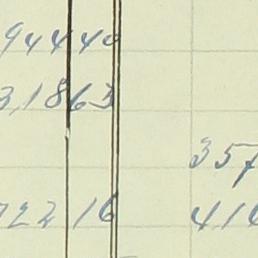 94440
31863
357
72216 416